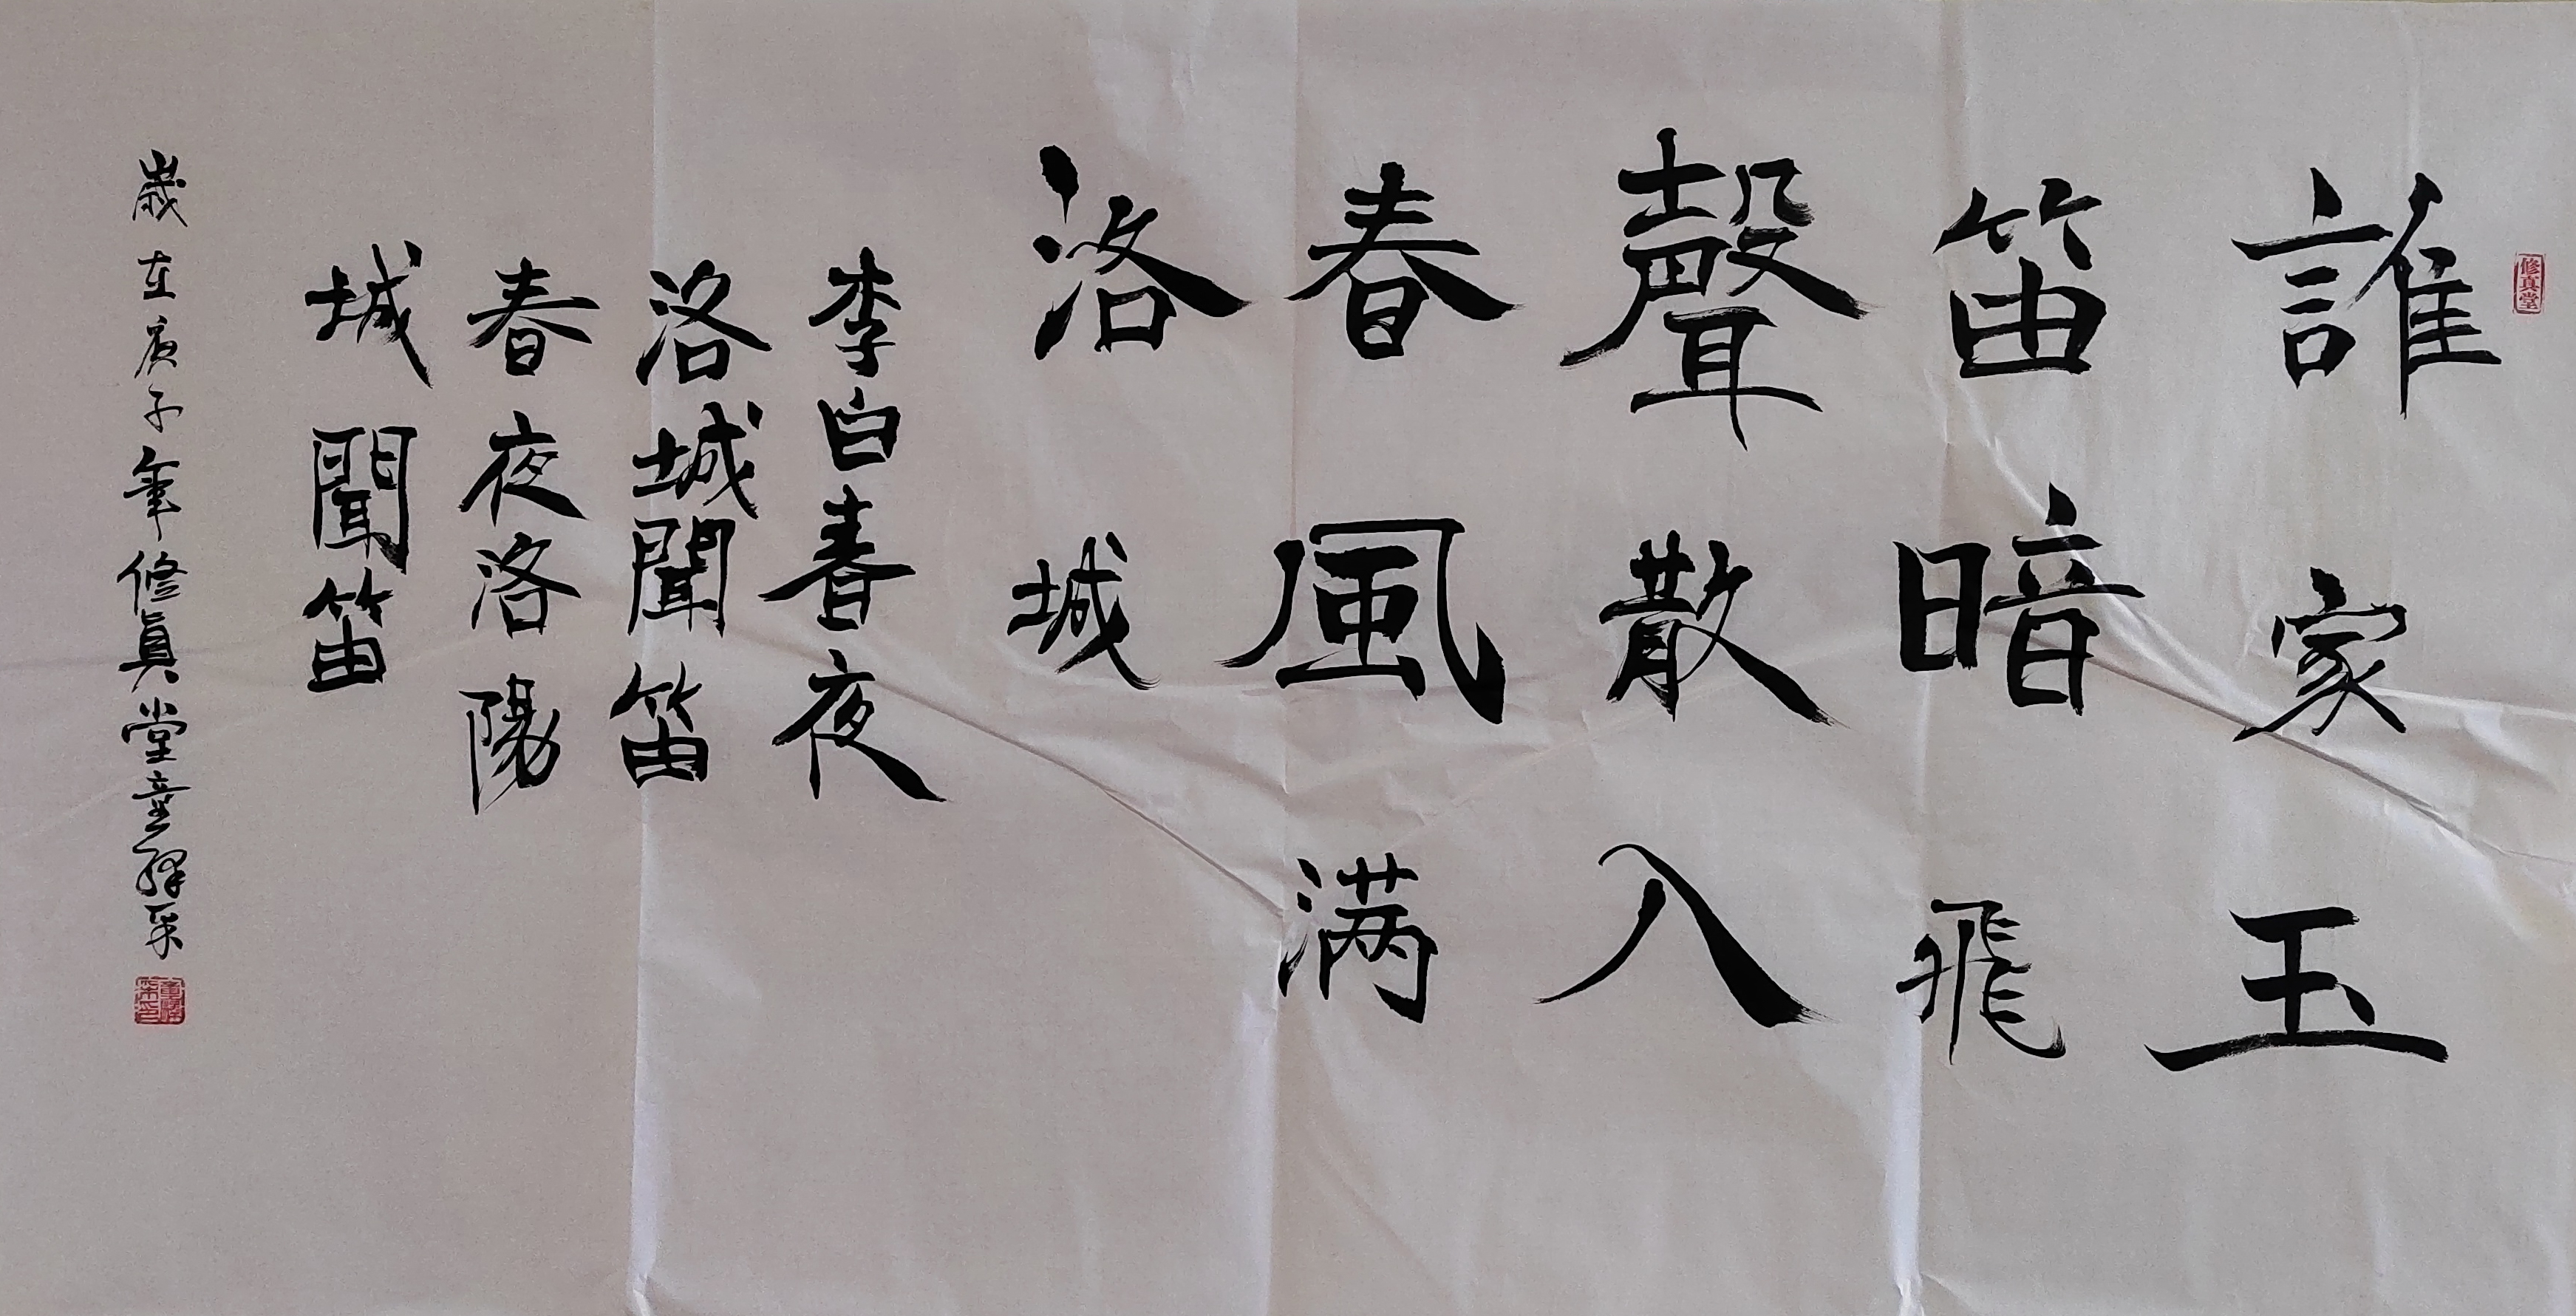 修真堂
誰家玉
笛暗飛
聲散入
春風满
洛城
李白春夜
洛城聞笛
春夜洛陽
城聞笛
歲在庚子年修真堂童譯采